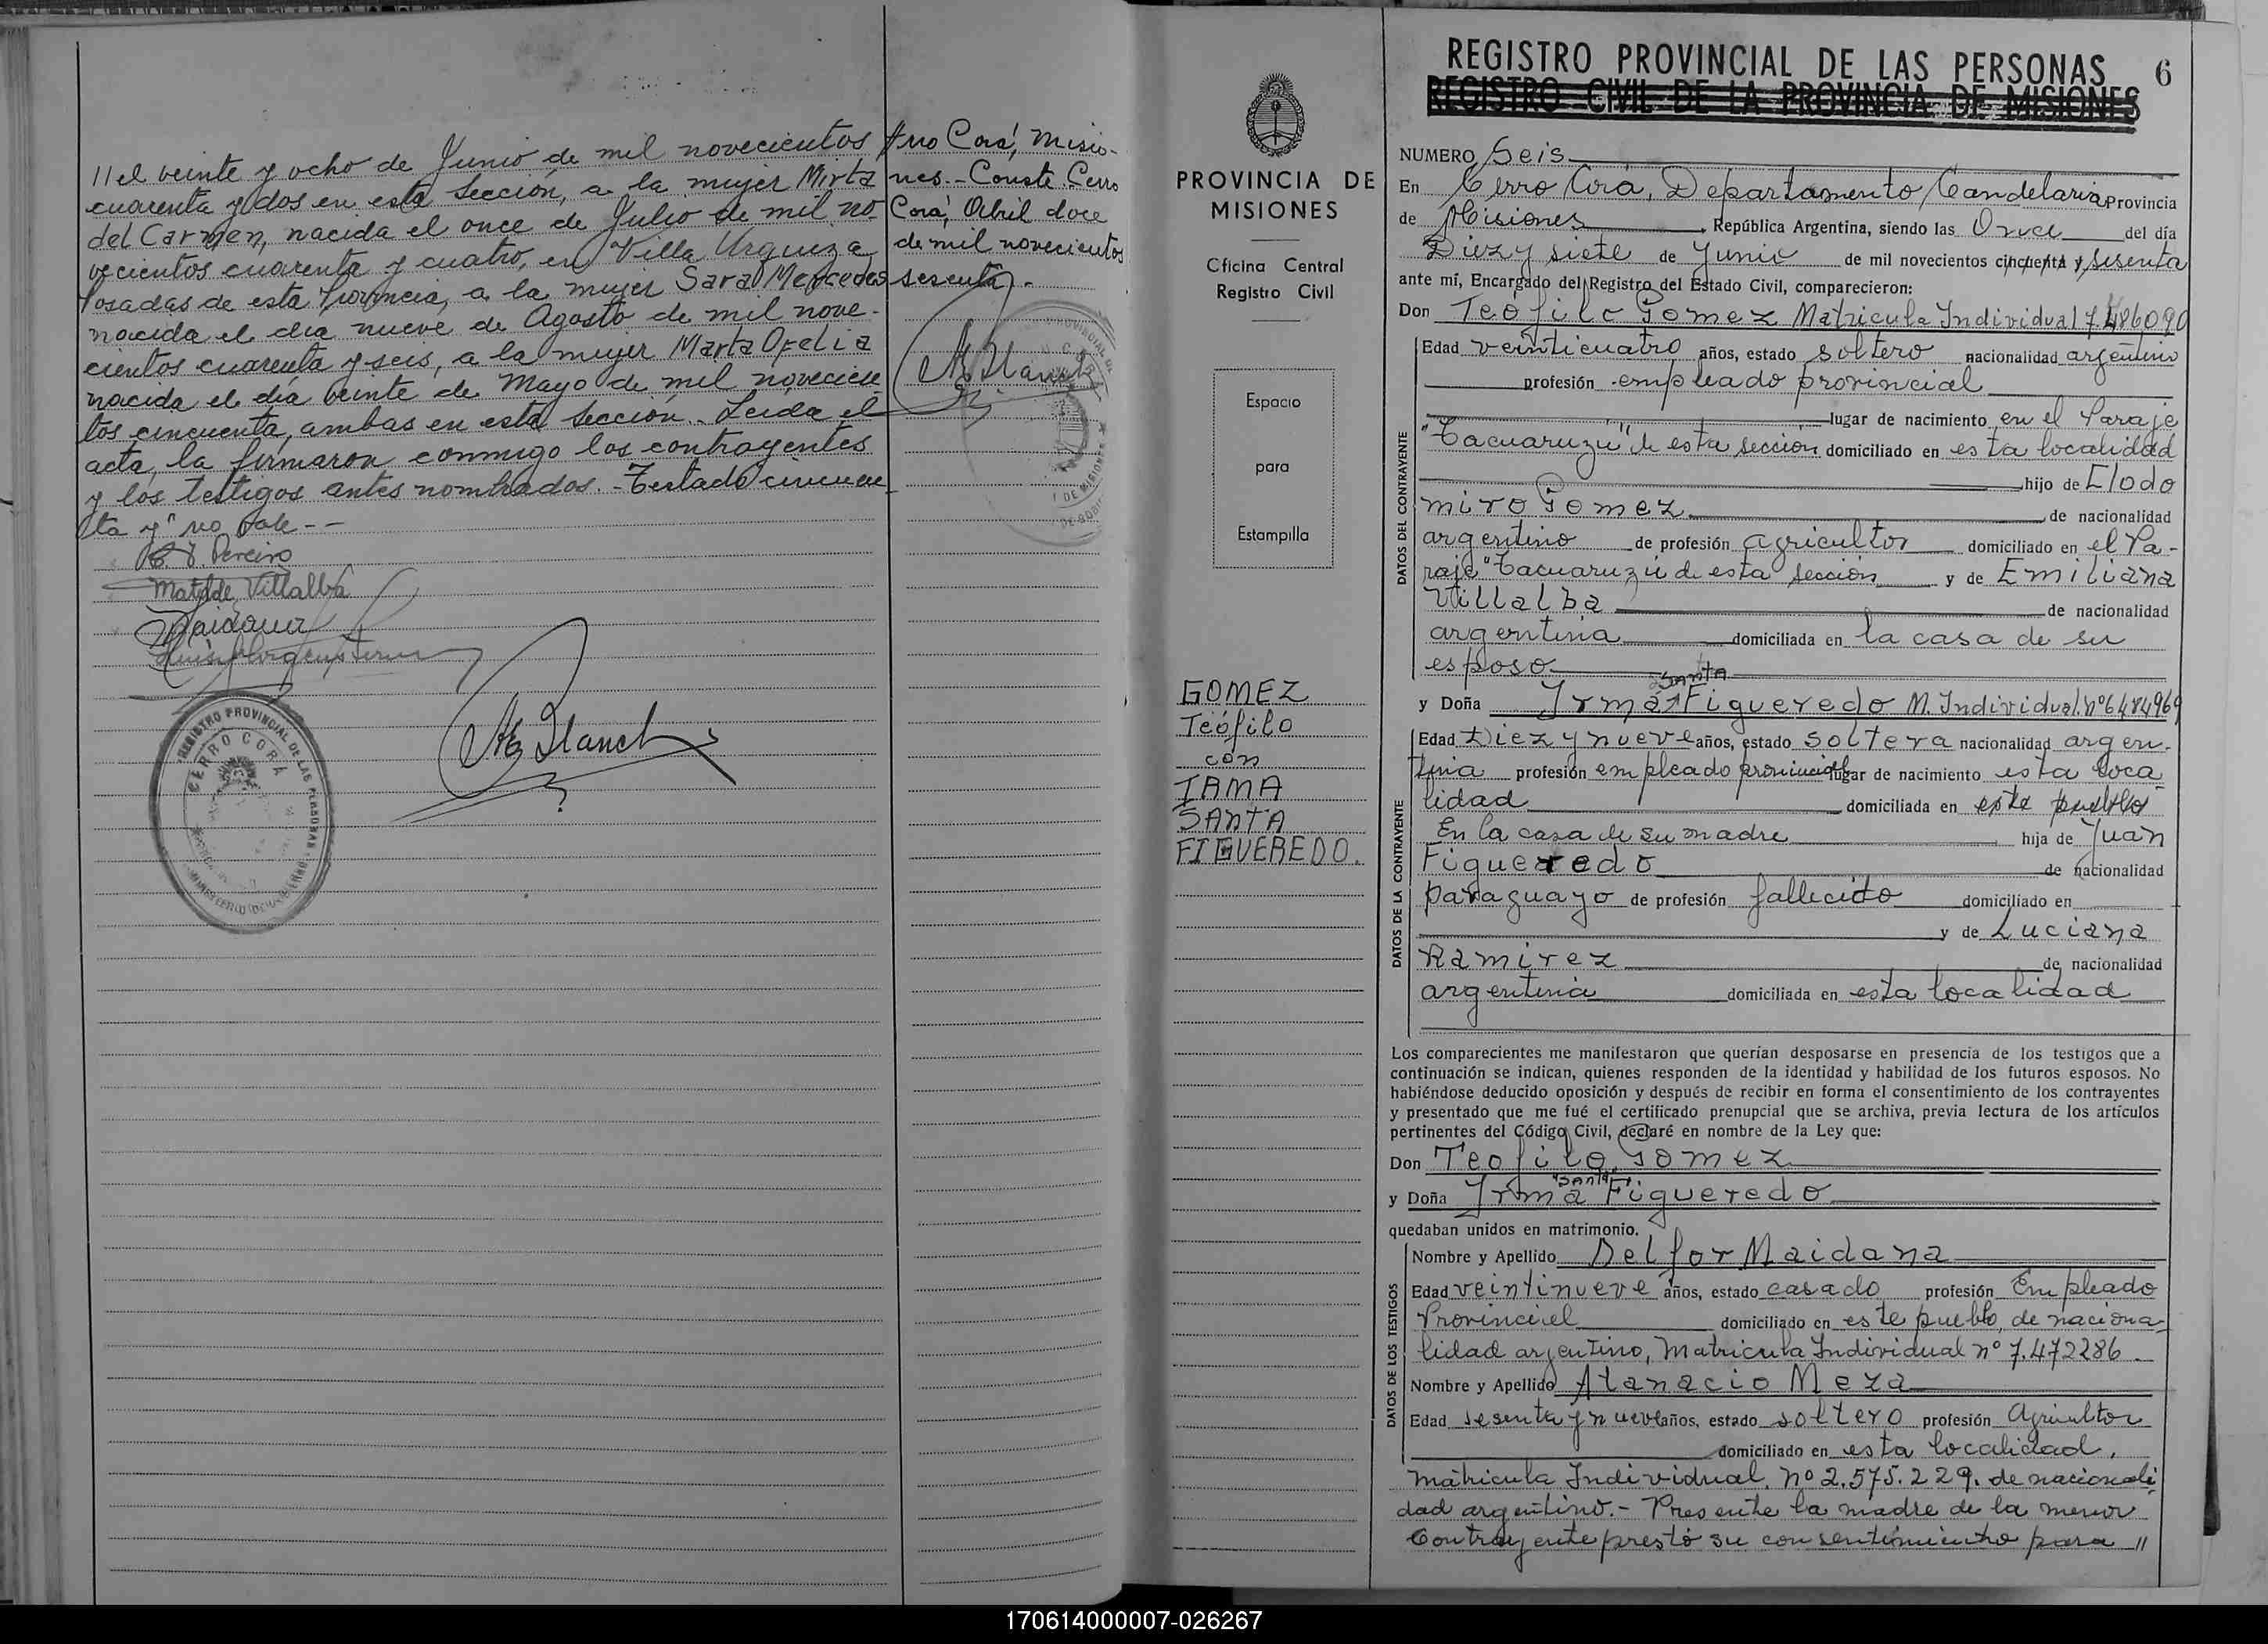 //el veinte y ocho de Junio de mil novecientos
cuarenta y dos en esta Sección, a la mujer Mirta
del Carmen, nacida el once de Julio de mil no-
vecientos cuarenta y cuatro, en Villa Urquiza
Posadas de esta Provincia, a la mujer Sara Mercedes
nacida el día nueve de Agosto de mil nove-
cientos cuarenta y seis, a la mujer Marta Ofelia
nacida el día veinte de Mayo de mil novecien
tos cincuenta, ambas en esta Sección. Leída el
acta, la firmaron conmigo los contrayentes
y los testigos antes nombrados.- Testado cincuen-
ta y" no vale--
Pereira
Matilde Villalba
Maidana
REGISTRO PROVINCIAL DE LAS PERSONAS
CERRO CORÁ
rro Corá, Misio-
nes.- Conste. Cerro
Corá, Abril doce
de mil novecientos
sesenta.-
PROVINCIA DE
MISIONES
Oficina Central
Registro Civil
Espacio
para
Estampilla
GOMEZ
Teófilo
con
IRMA
SANTA
FIGUEREDO.
REGISTRO PROVINCIAL DE LAS PERSONAS 6
REGISTRO CIVIL DE LA PROVINCIA DE MISIONES
NUMERO Seis
En Cerro Corá, Departamento Candelaria Provincia
de Misiones, República Argentina, siendo las Once del día
Diez y siete de Junio de mil novecientos cincuenta y sesenta
ante mí, Encargado del Registro del Estado Civil, comparecieron:
Don Teófilo Gomez Matricula Individual 7.486090
DATOS DEL CONTRAYENTE
Edad veinticuatro años, estado soltero nacionalidad argentino
profesión empleado provincial
lugar de nacimiento en el Paraje
"Tacuaruzú" de esta sección domiciliado en esta localidad
hijo de Elodo
miro Gomez de nacionalidad
argentino de profesión agricultor domiciliado en el Pa-
raje "Tacuaruzú de esta sección y de Emiliana
Villalba de nacionalidad
argentina domiciliada en la casa de su
esposo
y Doña Irma Santa Figueredo M. Individual. nº 6484969
DATOS DE LA CONTRAYENTE
Edad Diez y nueve años, estado soltera nacionalidad argen-
tina profesión empleado provincial lugar de nacimiento esta loca
lidad domiciliada en este pueblo
En la casa de su madre hija de Juan
Figueredo de nacionalidad
paraguayo de profesión fallecido domiciliado en
y de Luciana
Ramirez de nacionalidad
argentina domiciliada en esta localidad
Los comparecientes me manifestaron que querían desposarse en presencia de los testigos que a
continuación se indican, quienes responden de la identidad y habilidad de los futuros esposos. No
habiéndose deducido oposición y después de recibir en forma el consentimiento de los contrayentes
y presentado que me fué el certificado prenupcial que se archiva, previa lectura de los artículos
pertinentes del Código Civil, declaré en nombre de la Ley que:
Don Teofilo Gomez
y Doña Irma "Santa" Figueredo
quedaban unidos en matrimonio.
DATOS DE LOS TESTIGOS
Nombre y Apellido Delfor Maidana
Edad veintinueve años, estado casado profesión Empleado
Provincial domiciliado en este pueblo, de naciona-
lidad argentino, Matricula Individual nº 7.472286.
Nombre y Apellido Atanacio Meza
Edad sesenta y nueve años, estado soltero profesión Agricultor
domiciliado en esta localidad,
matricula Individual. nº 2.575.229. de nacionali
dad argentino.- Presente la madre de la menor
Contrayente prestó su consentimiento para //
170614000007-026267